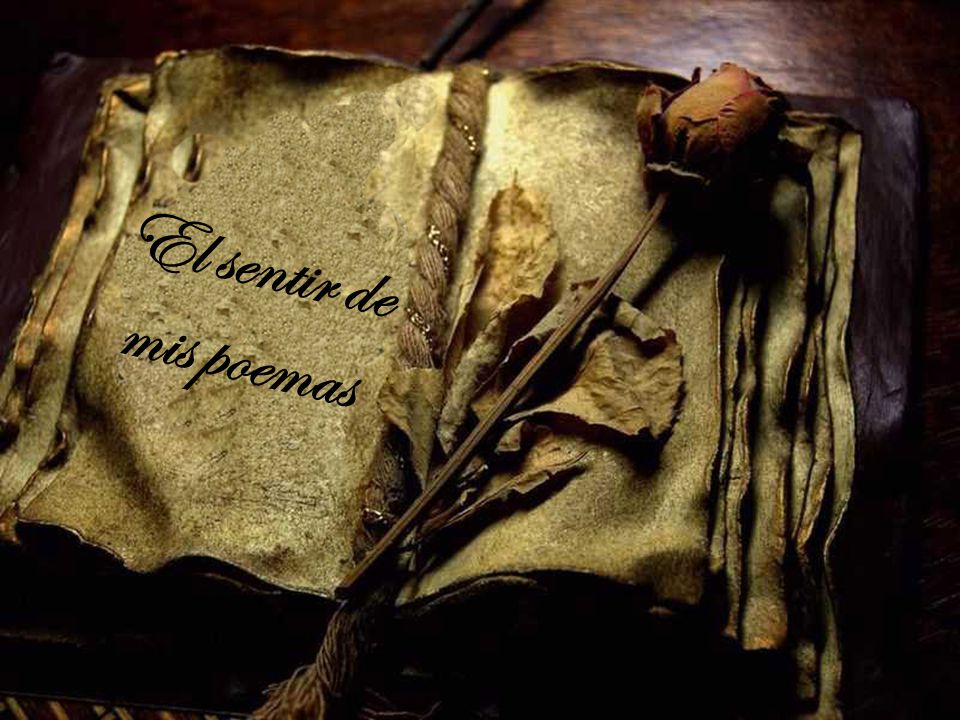 El sentir de
mis poemas